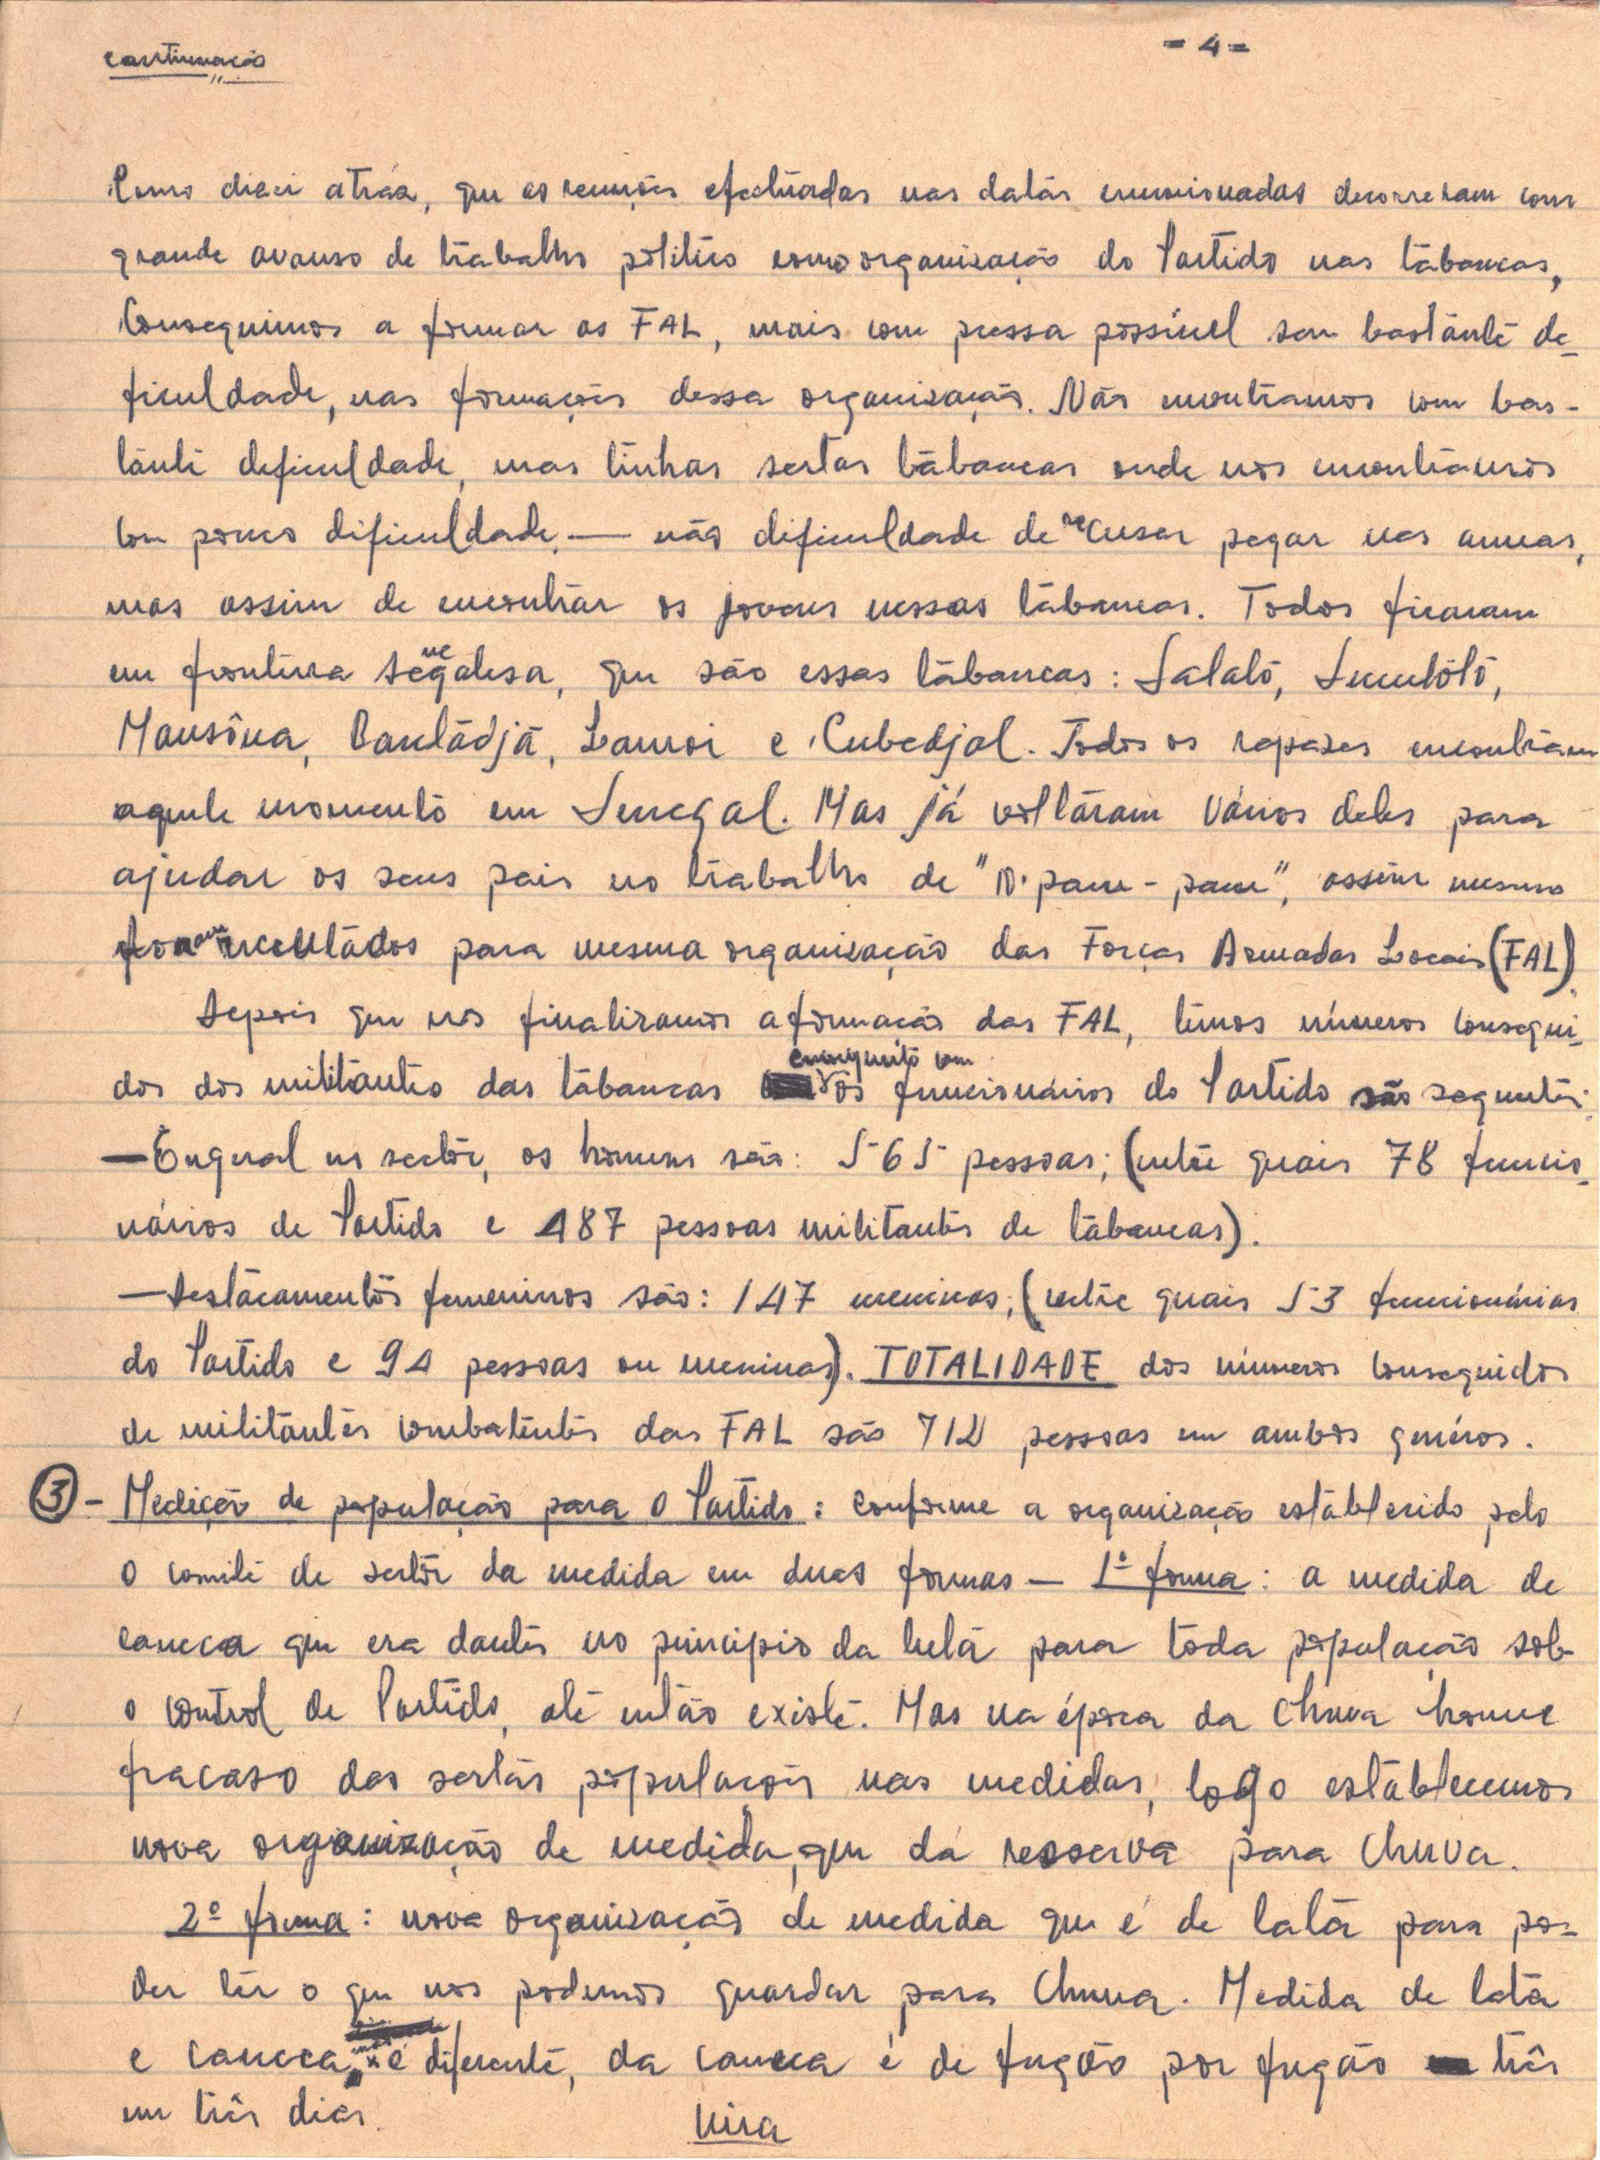 continuação
- 4 -
Como disei atráz, que as reuniões efectuadas nas datas emensionadas decorreram com
grande avanso de trabalho politico como organização do Partido nas tabancas,
Conseguimos a formar as FAL, mais com pressa possivel sem bastante de-
ficuldade, nas formações dessa organização. Não encontramos com bas-
tante deficuldade, mas tinhas sertas tabancas onde nos encontramos
com pouco dificuldade — não dificuldade de recusar pegar nas armas,
mas assim de encontrar os jovens nessas tabancas. Todos ficaram
em frontera senegalesa, que são essas tabancas: Salaló, Sucutótó,
Mansôna, Bantãdjã, Lamoi e Cubedjal. Todos os rapazes encontram
aquele momento em Senegal. Mas já voltáram vários deles para
ajudar os seus pais no trabalho de "N'pam-pam", assim mesmo
foram recultados para mesma organização das Forças Armadas Locais (FAL).
Depois que nos finalizamos a formação das FAL, temos números consegui-
dos dos militantes das tabancas enconjunto com os funcionários do Partido são seguintes:
— Engeral no sector, os homens são: 565 pessoas; (entre quais 78 funcio-
nários de Partido e 487 pessoas militantes de tabancas).
— Destacamentos femeninos são: 147 meninas; (entre quais 53 funcionárias
do Partido e 94 pessoas ou meninas). TOTALIDADE dos números conseguidos
de militantes combatentes das FAL são 712 pessoas em ambos generos.
3 - Medição de população para o Partido: conforme a organização establerido pelo
o comité de sector da medida em duas formas — 1ª forma: a medida de
caneca que era dantes no principio da luta para toda população sob
o control de Partido, até então existe. Mas na época da chuva houve
fracaso das sertas populações nas medidas, logo estáblecemos
nova organização de medida, que dá resserva para chuva.
2º forma: nova organização de medida que é de lata para po-
der ter o que nos podemos guardar para chuva. Medida de lata
e caneca é diferente, da caneca é de fugão por fugão três
em três dias.
Vira